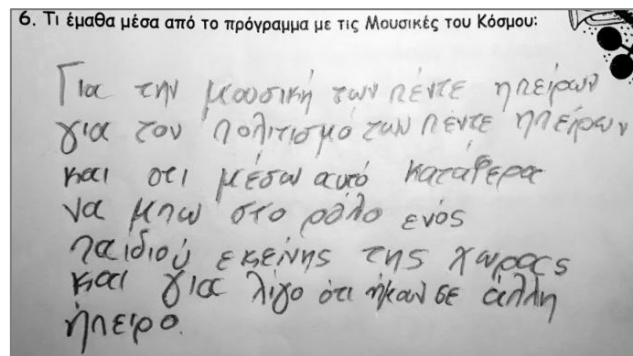 6. Τι έμαθα μέσα από το πρόγραμμα με τις Μουσικές του Κόσμου:
Για την μουσική των πέντε ηπείρων
για τον πολιτισμό των πέντε ηπείρων
και οτι μέσω αυτό κατάφερα
να μπω στο ρόλο ενός
παιδιού εκείνης της χώρας
και για λίγο ότι ήμουν σε άλλη
ήπειρο.